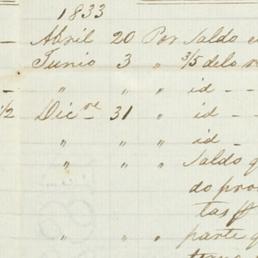 1833
— Abril 20 Por Saldo
Junio 3 " 3/5 de lo
— " " " id - -
1/2 Dic.re 31 " id - -
" " " id -
" " " Saldo q
do pro
tas
" " " parte q